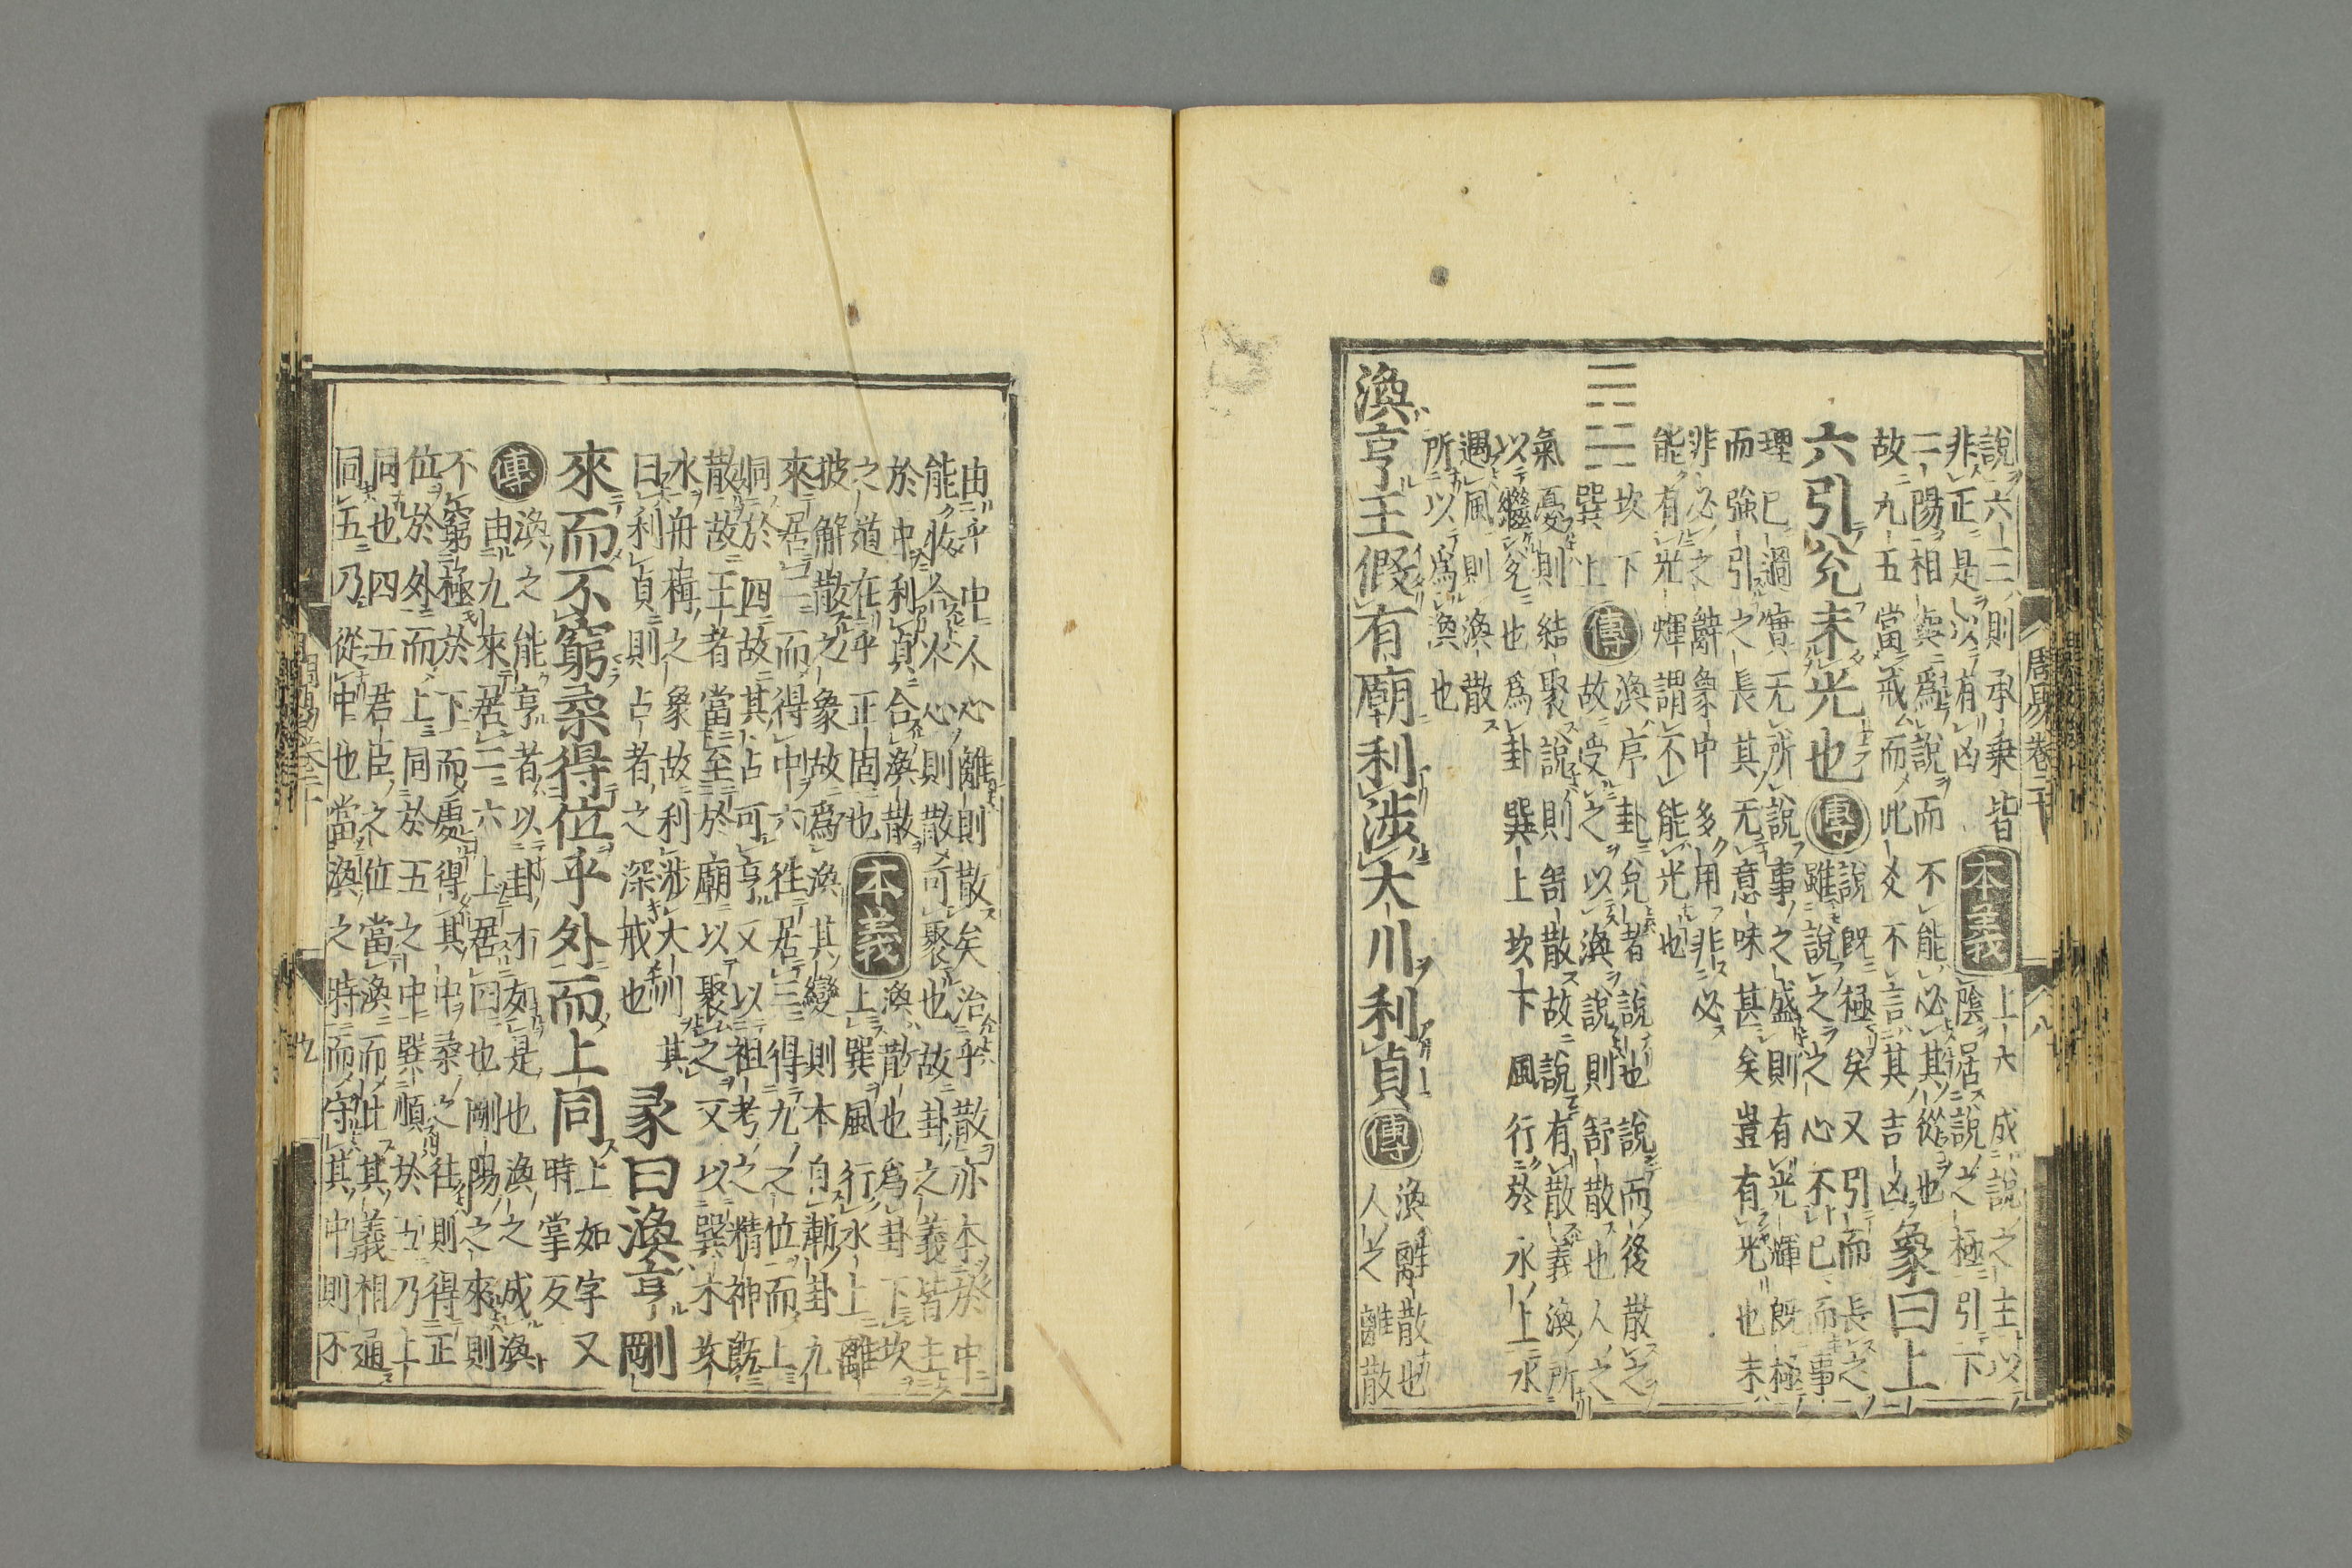 說六三則承乘皆
非正是以有凶
本義
上六成說之主以
陰居說之極引下
二陽相與爲說而不能必其從也
故九五當戒而此爻不言其吉凶
象曰上
六引兊未光也
傳
說既極矣又引而長之
雖說之之心不已而事
理已過實无所說事之盛則有光輝既極
而強引之長其无意味甚矣豈有光也未
非必之辭象中多用非必
能有光輝謂不能光也
䷺
坎下
巽上
傳
渙序卦兊者說也說而後散之
故受之以渙說則舒散也人之
氣憂則結聚說則舒散故說有散義渙所
以繼兊也爲卦巽上坎下風行於水上水
遇風則渙散
所以爲渙也
渙亨王假有廟利涉大川利貞
傳
渙離散也
人之離散
周易卷二十
八
由乎中人心離則散矣治乎散亦本於中
能收合人心則散可聚也故卦之義皆主
於中利貞合渙散
之道在乎正固也
本義
渙散也爲卦下坎
上巽風行水上離
披解散之象故爲渙其變則本自漸卦九
來居二而得中六往居三得九之位而上
同於四故其占可亨又以祖考之精神既
散故王者當至於廟以聚之又以巽木坎
水舟楫之象故利涉大川其
曰利貞則占者之深戒也
彖曰渙亨剛
來而不窮柔得位乎外而上同
上如字又
時掌反
傳
渙之能亨者以卦才如是也渙之成渙
由九來居二六上居四也剛陽之來則
不窮極於下而處得其中柔之往則得正
位於外而上同於五之中巽順於五乃上
同也四五君臣之位當渙而比其義相通
同五乃從中也當渙之時而守其中則不
周易卷二十
九